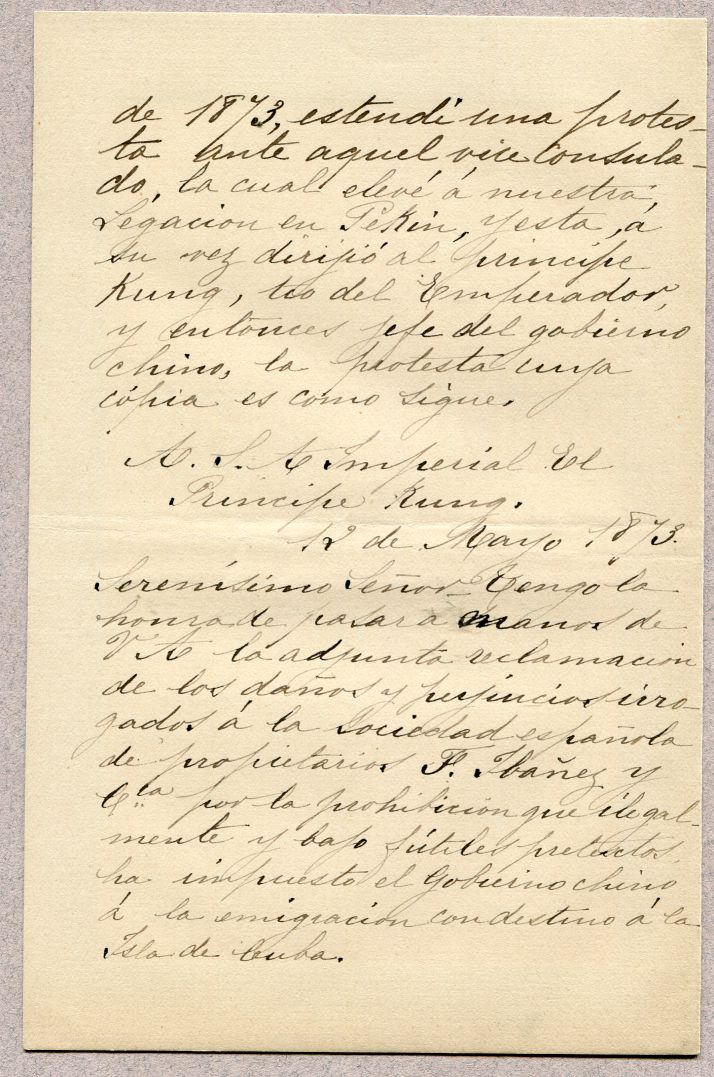 de 1873, estendí una protes-
ta ante aquel vice consula-
do, la cual elevé á nuestra
Legacion en Pekin, y esta, á
su vez dirijió al príncipe
Kung, tio del Emperador,
y entonces jefe del gobierno
chino, la protesta cuya
cópia es como sigue.
A. S. A Imperial El
Príncipe Kung.
12 de Mayo 1873.
Serenísimo Señor - Tengo la
honra de pasar a manos de
V A la adjunta reclamacion
de los daños y perjuicios irro-
gados á la sociedad española
de propietarios F. Ibañez y
Cia por la prohibicion que ilegal-
mente y bajo fútiles pretextos,
ha impuesto el Gobierno chino
á la emigracion con destino á la
Isla de Cuba.